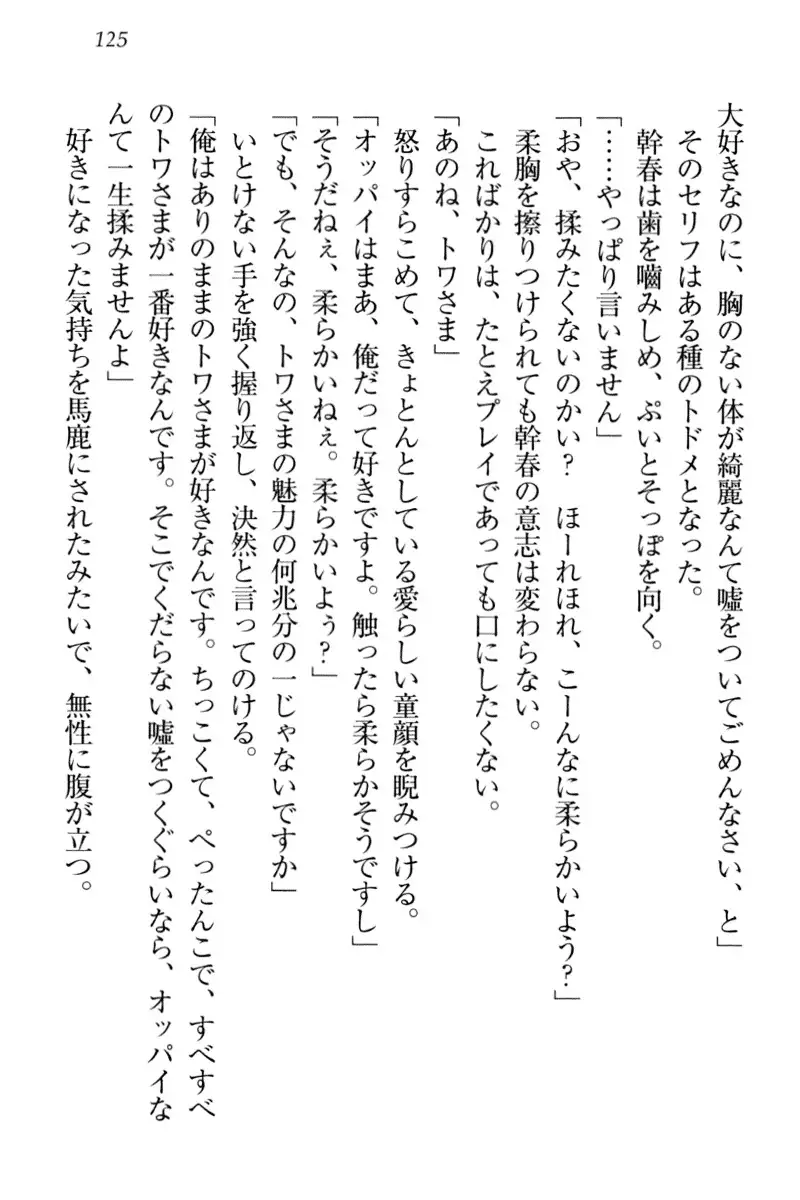 125
大好きなのに、胸のない体が綺麗なんて嘘をついてごめんなさい、と」
そのセリフはある種のトドメとなった。
幹春は歯を嚙みしめ、ぷいとそっぽを向く。
「……やっぱり言いません」
「おや、揉みたくないのかい？　ほーれほれ、こーんなに柔らかいよう？」
柔胸を擦りつけられても幹春の意志は変わらない。
こればかりは、たとえプレイであっても口にしたくない。
「あのね、トワさま」
怒りすらこめて、きょとんとしている愛らしい童顔を睨みつける。
「オッパイはまあ、俺だって好きですよ。触ったら柔らかそうですし」
「そうだねぇ、柔らかいねぇ。柔らかいよぅ？」
「でも、そんなの、トワさまの魅力の何兆分の一じゃないですか」
いとけない手を強く握り返し、決然と言ってのける。
「俺はありのままのトワさまが好きなんです。ちっこくて、ぺったんこで、すべすべ
のトワさまが一番好きなんです。そこでくだらない嘘をつくぐらいなら、オッパイな
んて一生揉みませんよ」
好きになった気持ちを馬鹿にされたみたいで、無性に腹が立つ。